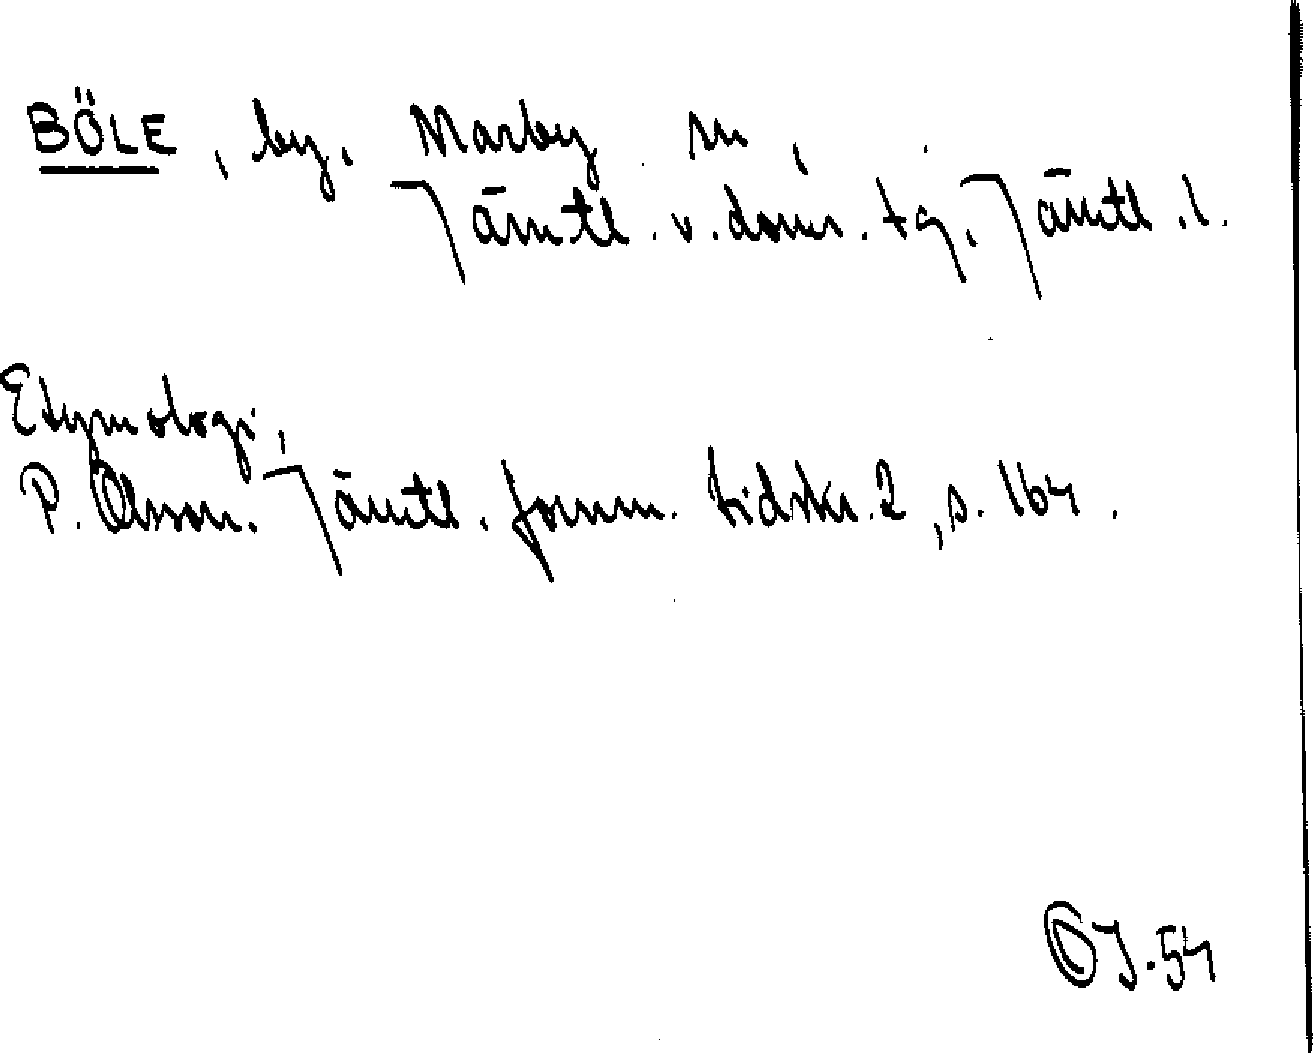 BÖLE, by, Marby sn,
Jämtl. v. doms. tg, Jämtl. l.
Etymologi,
P. Olsson. Jämtl. fornm. tidskr. 2, s. 164.
OJ.54